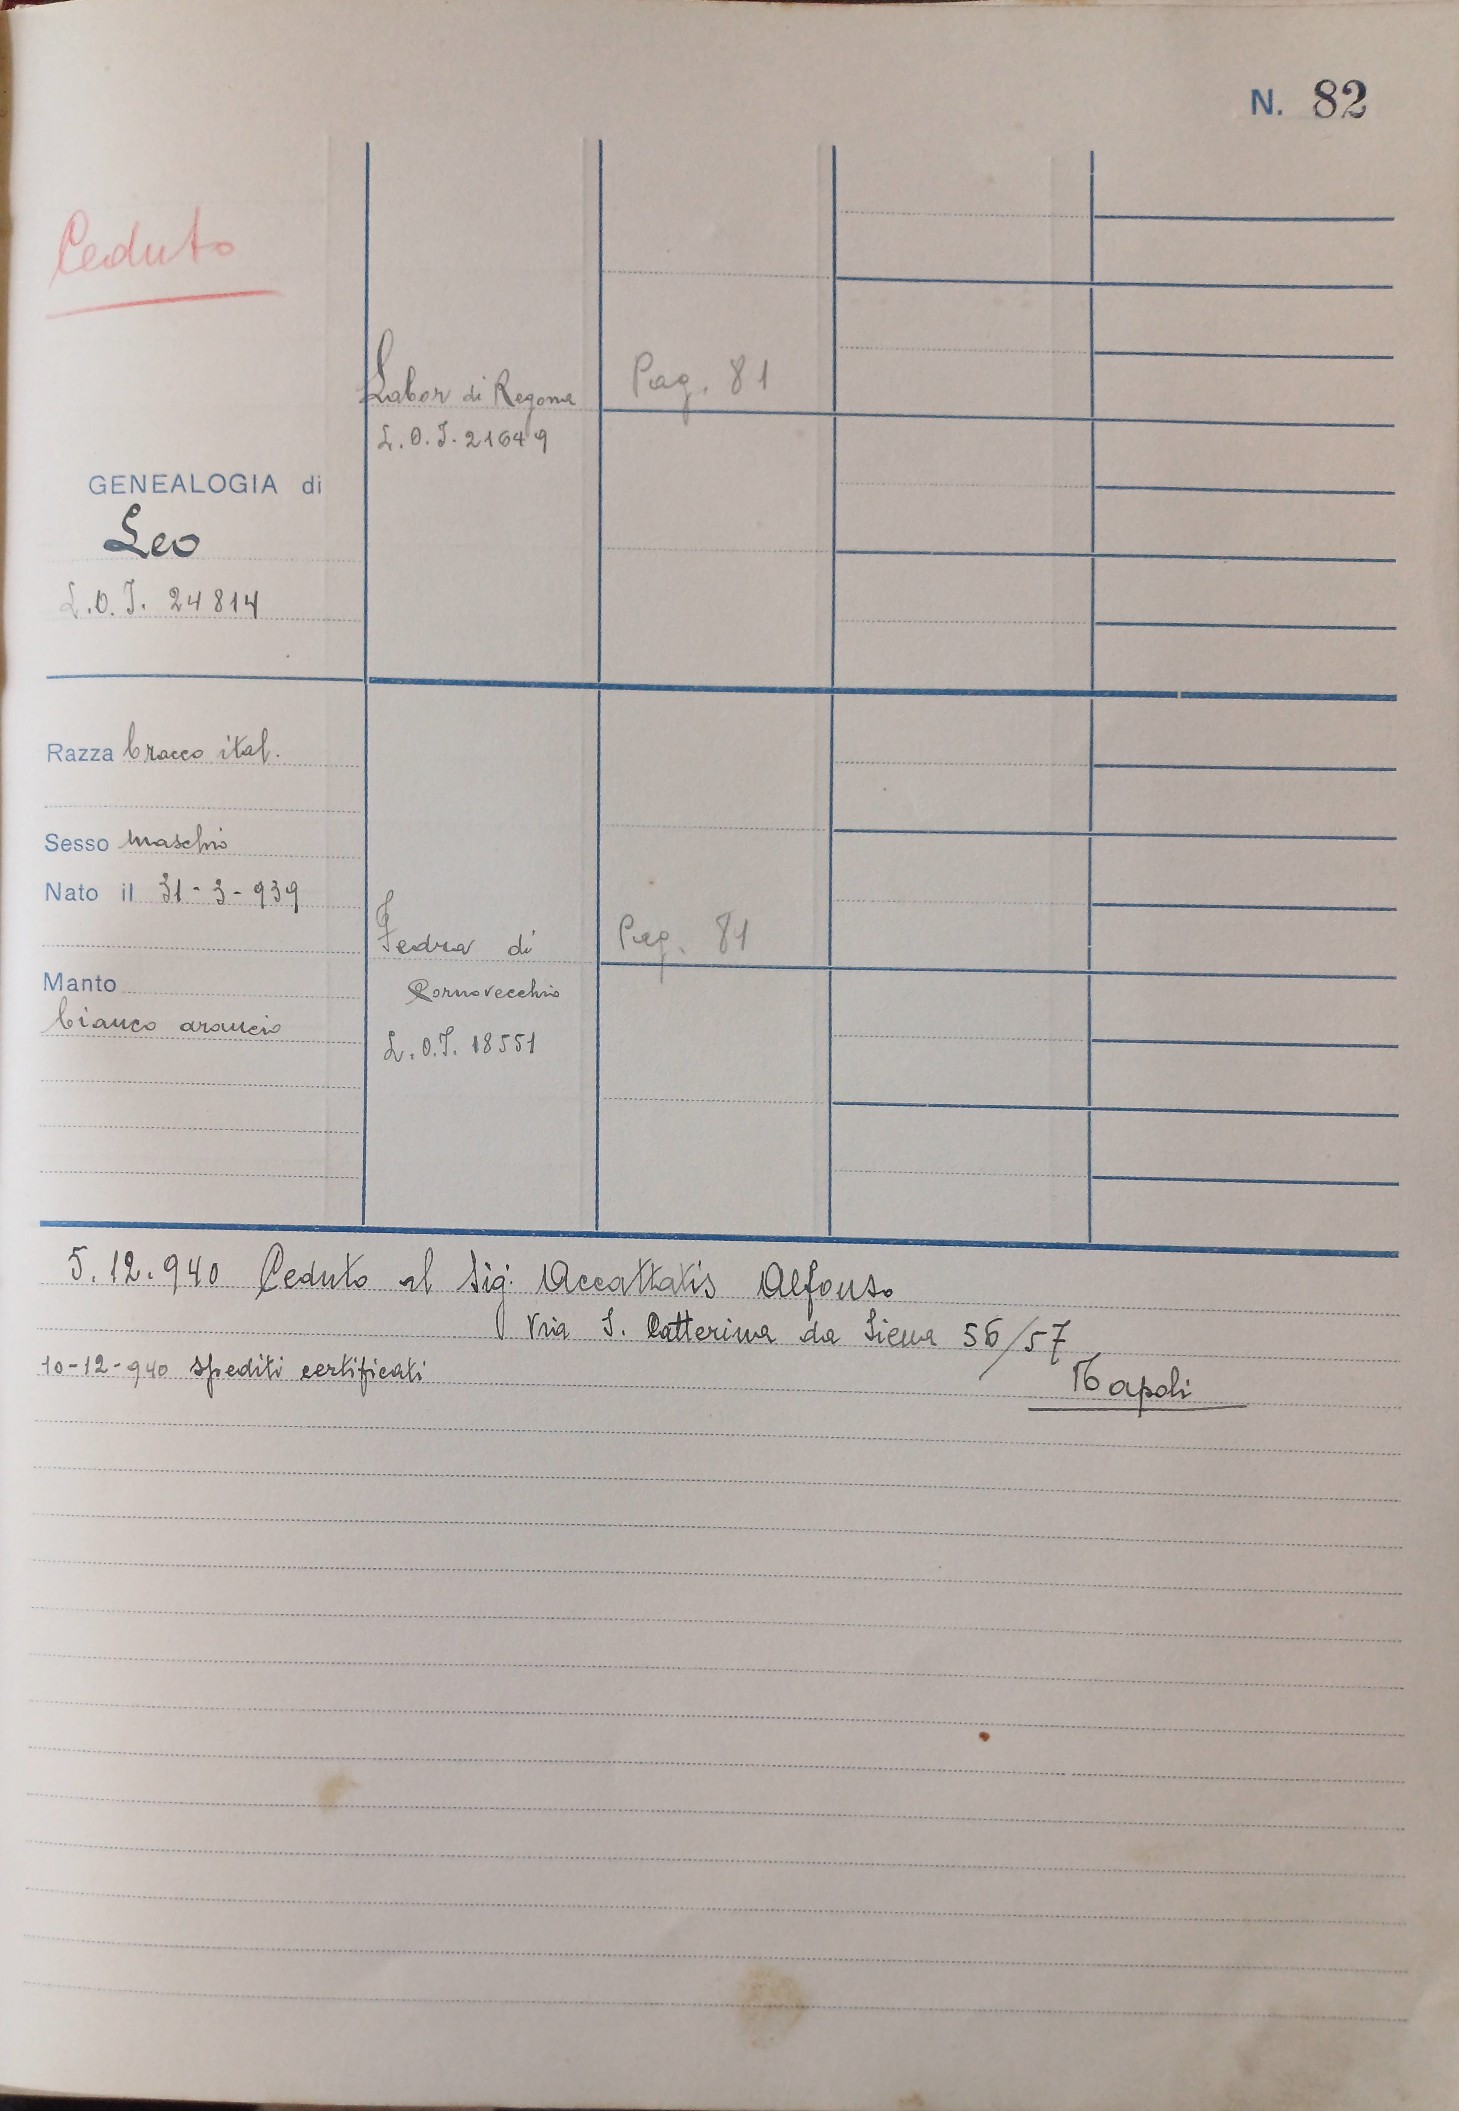 N. 82
Ceduto
Labor di Regona
Pag. 81
L.O.I. 21649
GENEALOGIA di
Leo
L.O.I. 24814
Razza bracco ital.
Sesso maschio
Nato il 31-3-939
Fedra di
Pag. 81
Cornovecchio
L.O.I. 18551
Manto
bianco arancio
5.12.940 Ceduto al Sig. Accattatis Alfonso
Via S. Catterina da Siena 56/57
10-12-940 spediti certificati
Napoli